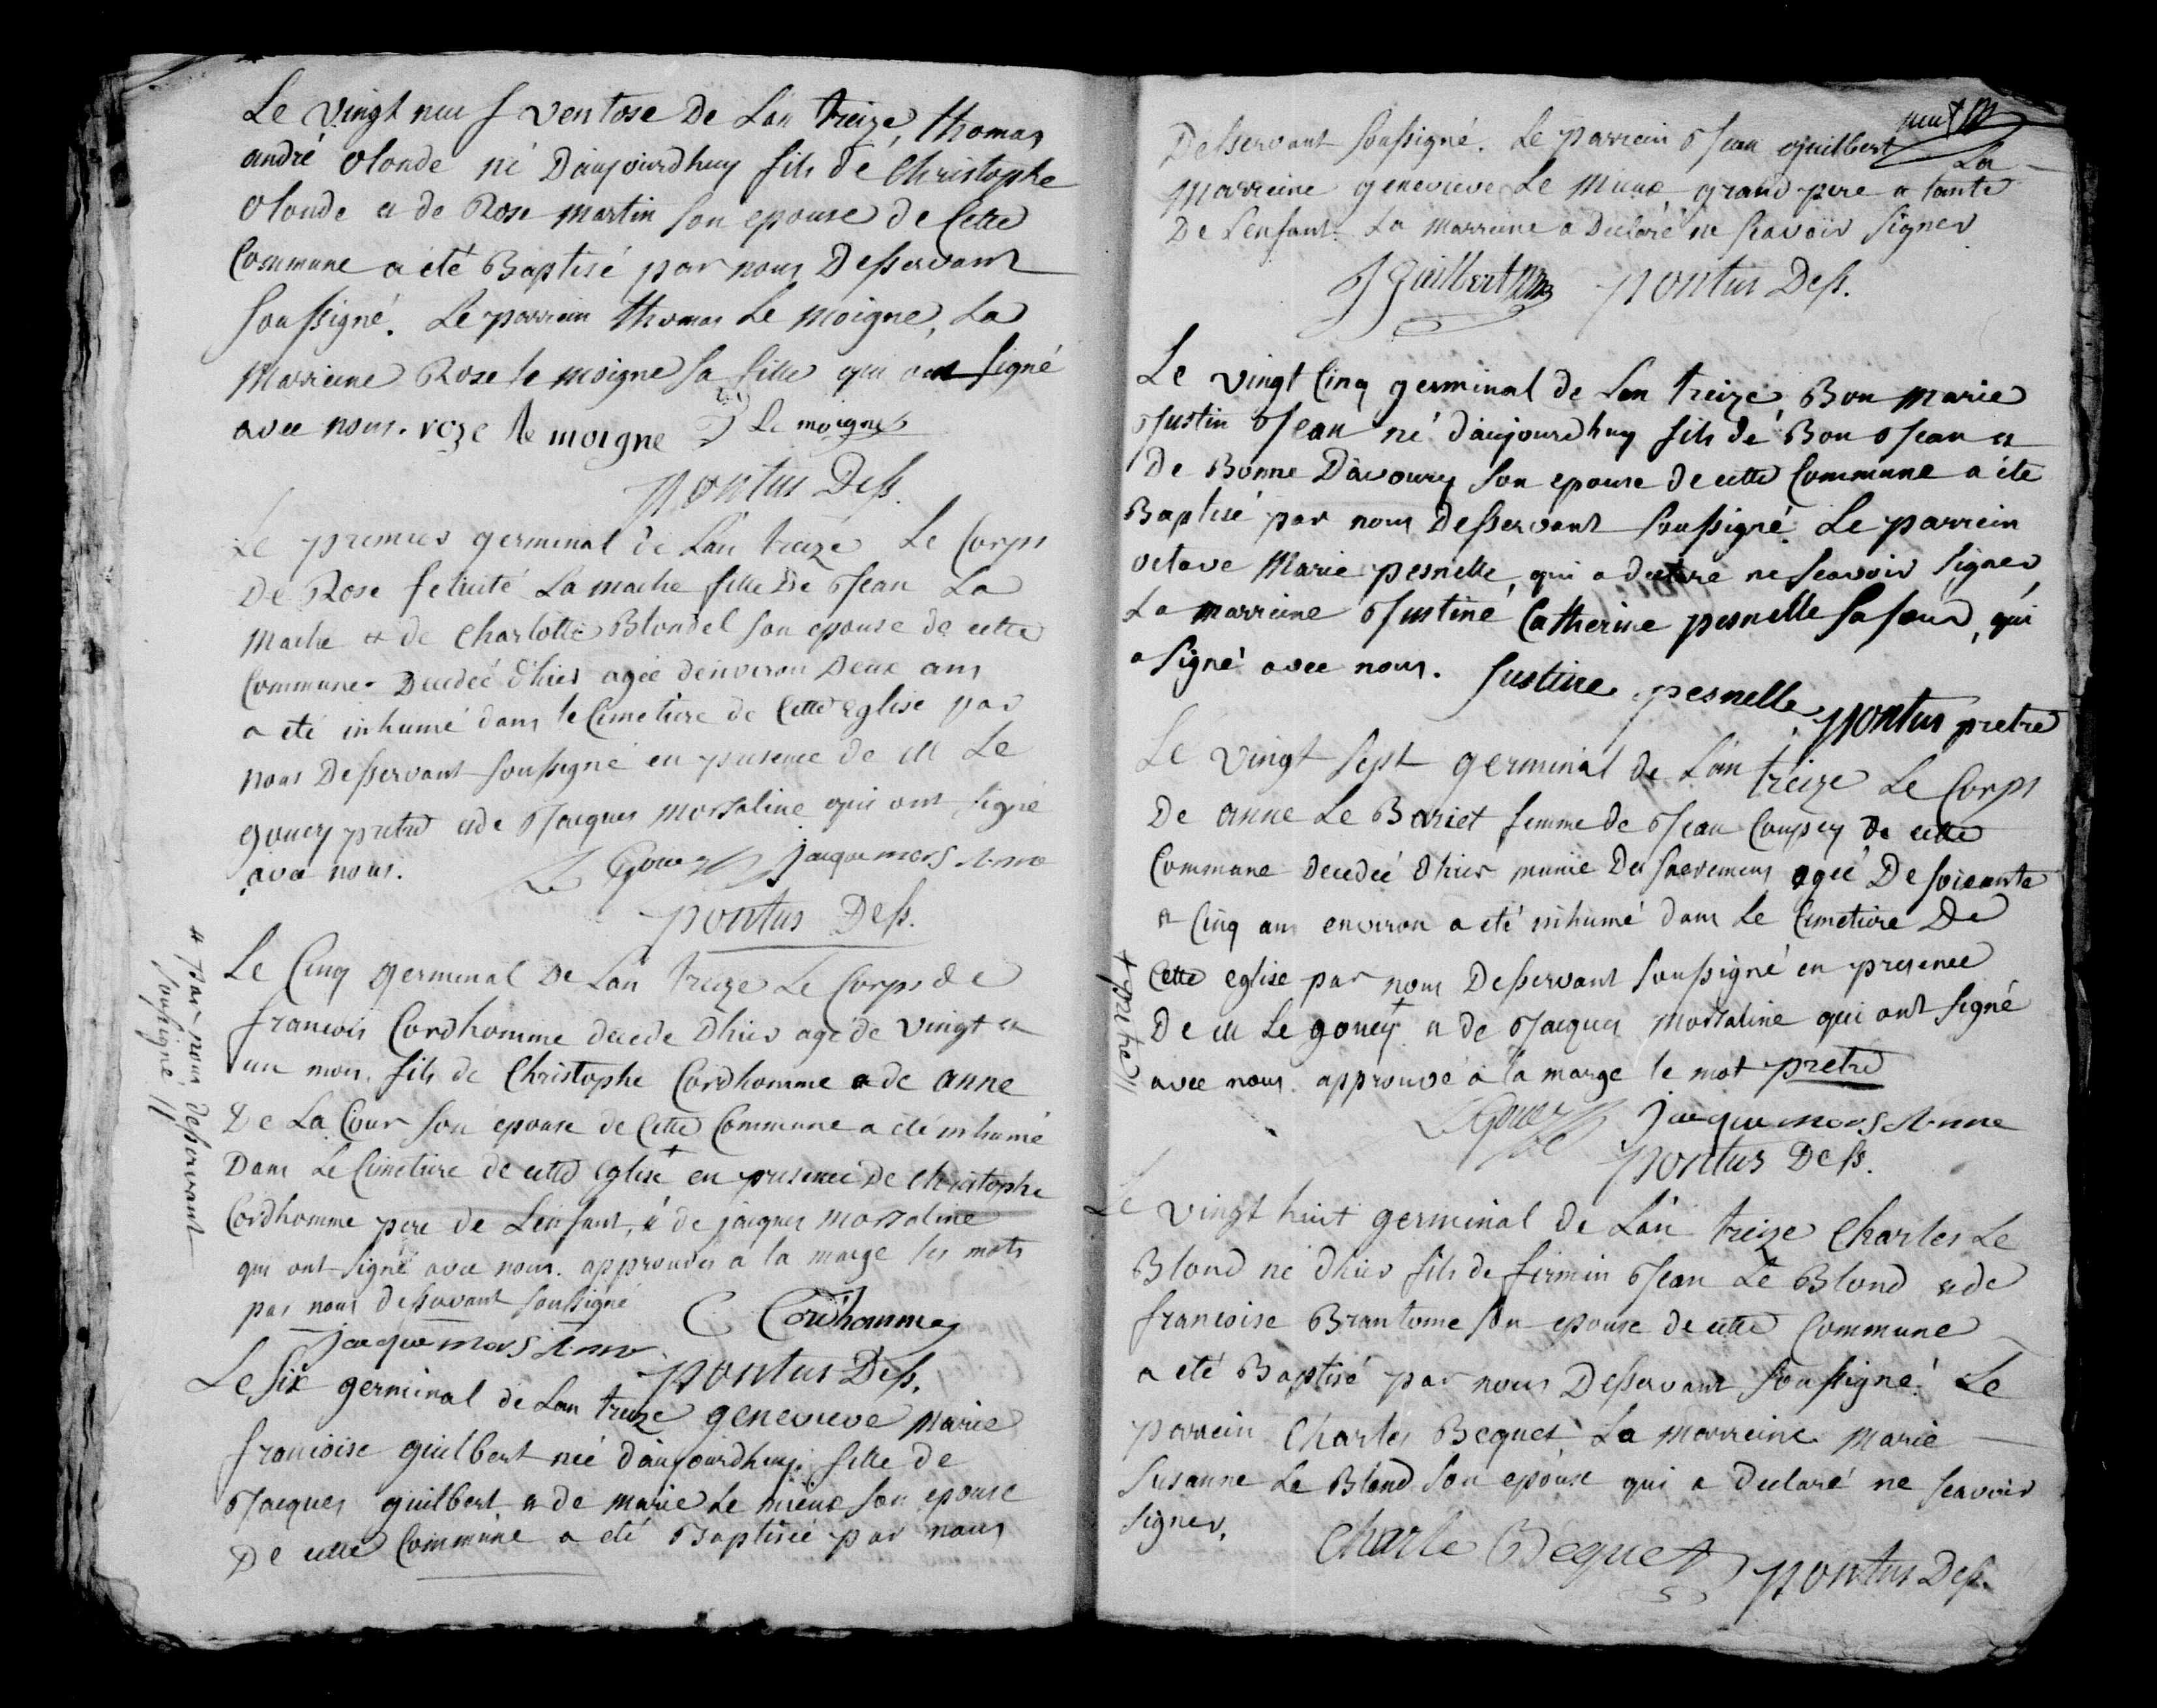 Le vingt neuf ventose De Lan treize, thomas
andré olonde né D'aujourdhuy fils de Christophe
olonde et de Rose martin son epouse de Cette
Commune a été Baptisé par nous Desservant
soussigné. Le parrein thomas Le moigne, La
Marreine Rose le moigne sa fille qui ont signé
avec nous. roze le moigne Le moigne
pontus Dess.
Le premier germinal de L'an treize Le Corps
De Rose felicité La mache fille De Jean La
mache et de Charlotte Blondel son epouse de cette
Commune Decedée d'hier agée d'environ Deux ans
a eté inhumé dans le Cimetiere de Cette Eglise par
nous Desservant soussigné en presence de M Le
gouey pretre et de Jacques mossaline qui ont signé
avec nous. Le Gouey jacque mors
pontus Dess.
Le Cinq germinal De Lan treize Le Corps de
francois Cordhomme decede D'hier agé de vingt et
un mois, fils de Christophe Cordhomme et de anne
De La Cour son epouse de Cette Commune a eté inhumé
Dans Le Cimetiere de cette Eglise + en presence de Christophe
Cordhomme pere de L'enfant, et de jacques mossaline
qui ont signé avec nous. approuvés a la marge les mots
par nous desservant soussigné C Cordhomme
jacque mors
pontus Dess.
+ Par nous desservant
soussigné //
Le six germinal de Lan treize genevieve marie
francoise guilbert née d'aujourdhuy fille de
Jacques guilbert et de marie Le mieux son epouse
De cette Commune a eté Baptisée par nous
Desservant soussigné. Le parrein Jean guilbert La
Marreine genevieve Le Mieux, grand pere et tante
De L'enfant. La marreine a Declaré ne scavoir signer
J Guilbert pontus Dess.
Le vingt Cinq germinal de Lan treize Bon Marie
Justin Jean né d'aujourdhuy fils de Bon Jean et
De Bonne Davoury son epouse de cette Commune a été
Baptisé par nous Desservant soussigné. Le parrein
octave Marie pesnelle, qui a declare ne scavoir signer
La marreine Justine Catherine pesnelle sa soeur, qui
a signé avec nous. Justine pesnelle pontus pretre
Le vingt sept germinal de L'an treize Le Corps
De anne Le Bariet femme de Jean Coupey de cette
Commune decedée d'hier munie Des sacremens agée De soixante
et Cinq ans environ a eté inhumé dans Le Cimetiere De
Cette eglise par nous Desservant soussigné en presence
De M Le gouey + et de Jacques mossaline qui ont signé
avec nous. approuvé a la marge le mot pretre
+ pretre //
LeGouey jacque mors
pontus Dess.
Le vingt huit germinal de L'an treize Charles Le
Blond né d'hier fils de firmin Jean Le Blond et de
francoise Brantome son epouse de cette Commune
a eté Baptisé par nous Desservant soussigné. Le
parrein Charles Bequet, La marreine Marie
Susanne Le Blond son epouse qui a declaré ne scavoir
signer.
Charle Bequet pontus Dess.